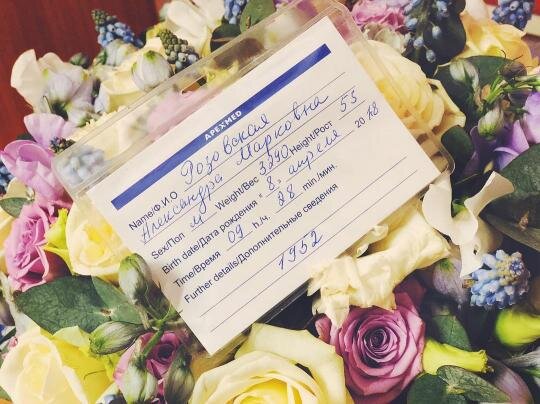 APEXMED
Name/Ф И О Розовская
Александра Марковна
Sex/Пол Weight/Вес 3290 Height/Рост 55
Birth date/Дата рождения "8" апреля 2018
Time/Время 09 h./ч. 28 min./мин.
Further details/Дополнительные сведения
1952